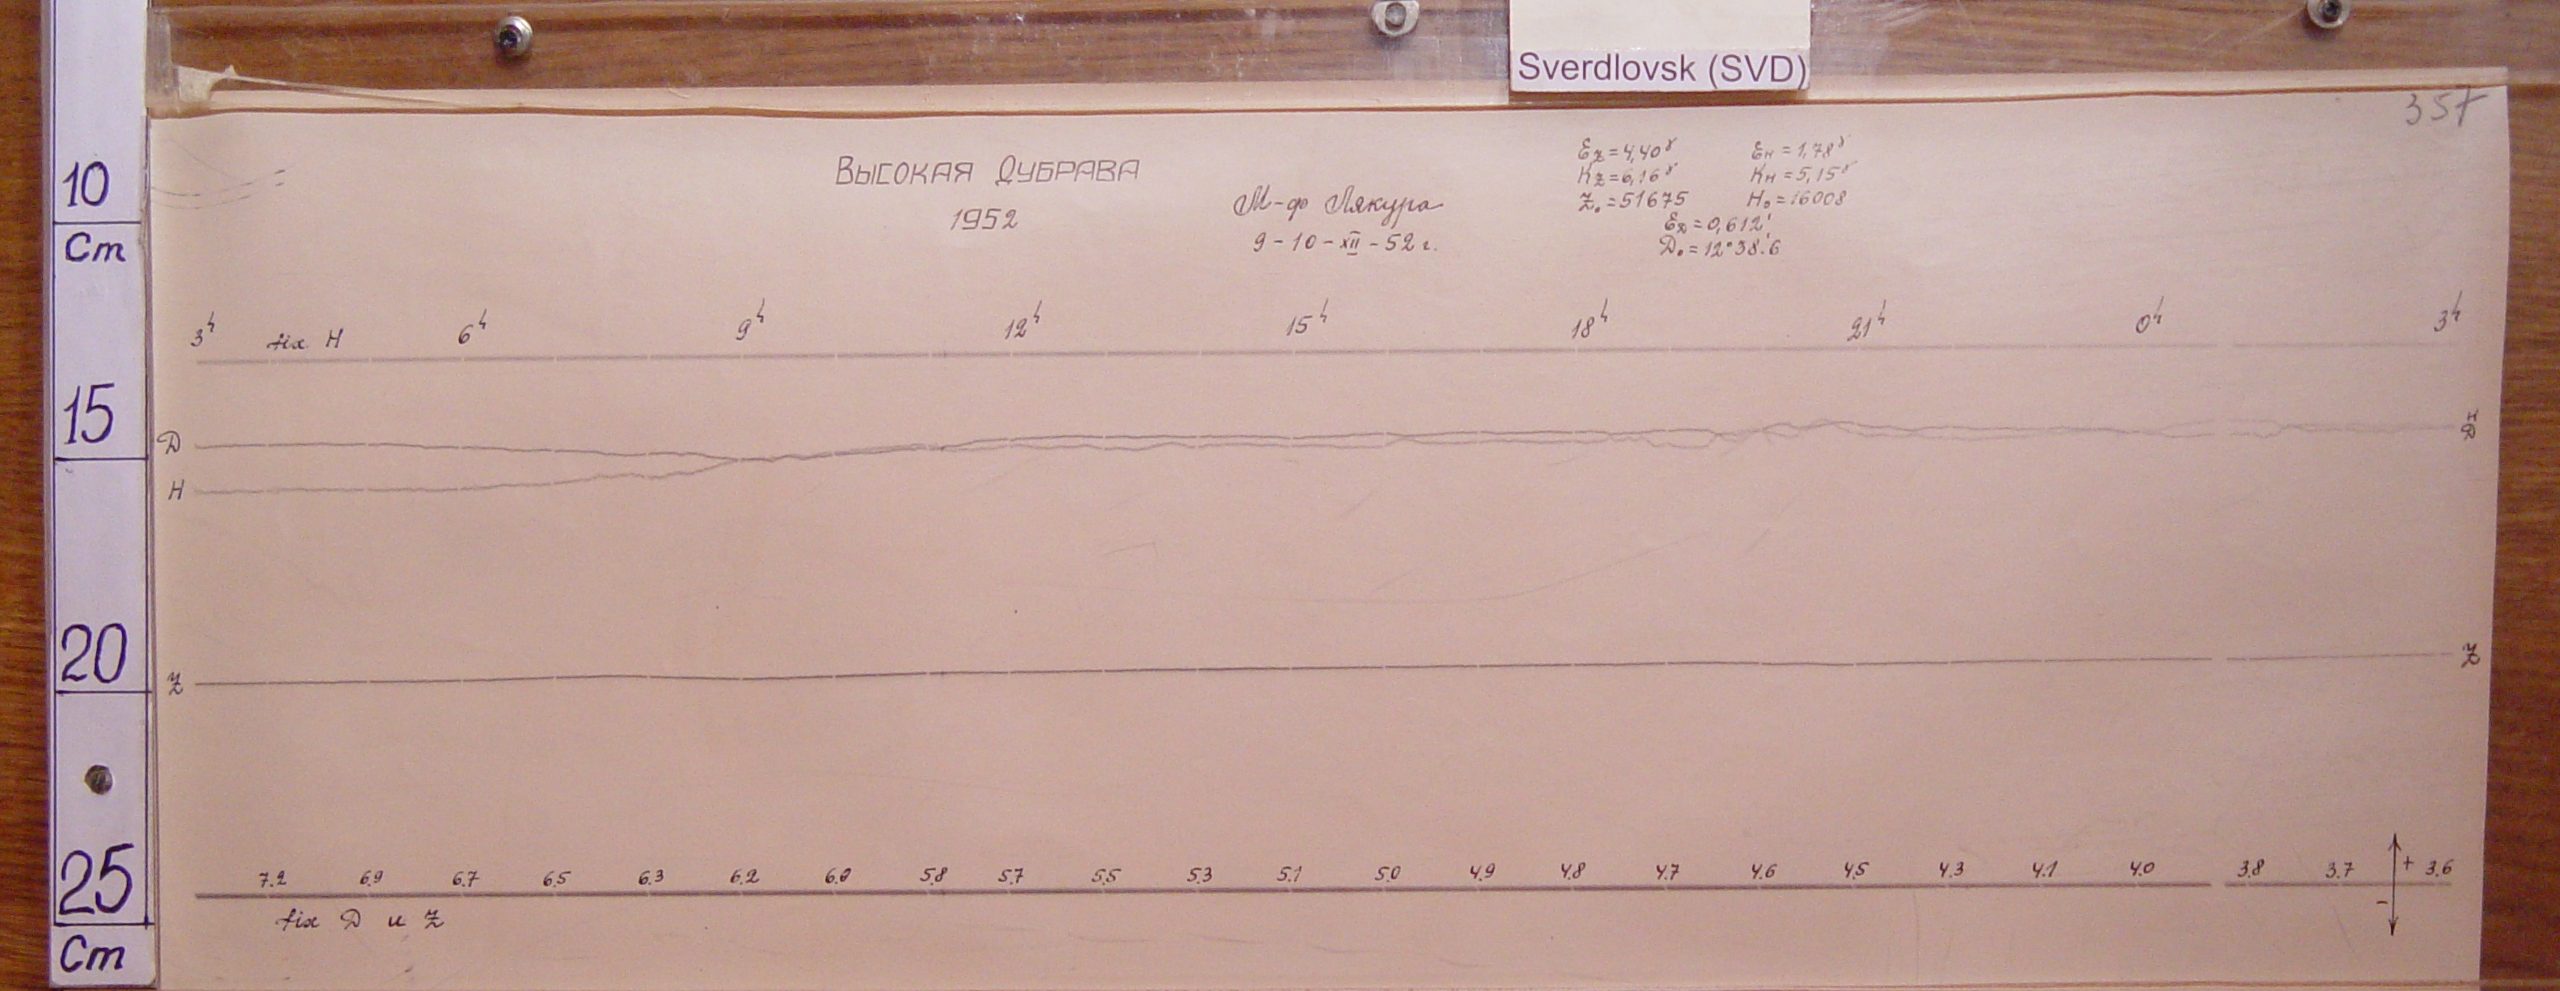 Sverdlovsk (SVD)
357
10
Cm
15
20
25
Cm
Высокая Дубрава
1952
М-ф Лякура
9-10-XII-52 г.
Ez=4,40γ Eн=1,78γ
Kz=6,16γ Kн=5,15γ
Z₀=51675 H₀=16008
ED=0,612'
D₀=12°38.6
3h 6h 9h 12h 15h 18h 21h 0h 3h
fix H
Д
H
H
Д
Z
Z
7.2 6.9 6.7 6.5 6.3 6.2 6.0 5.8 5.7 5.5 5.3 5.1 5.0 4.9 4.8 4.7 4.6 4.5 4.3 4.1 4.0 3.8 3.7 + 3.6
-
fix Д и Z